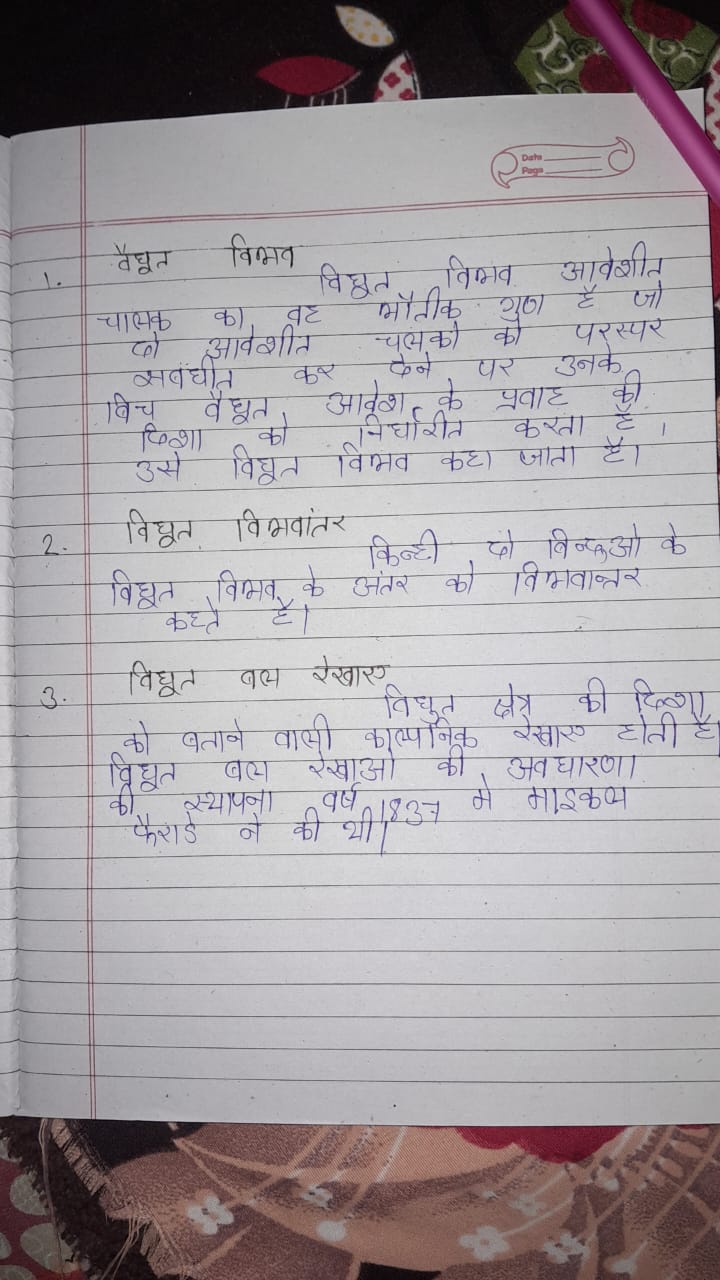 Date
Page
1. वैद्युत विभव
विद्युत विभव आवेशीत
चालक का वह भौतीक गुण है जो
दो आवेशीत चलको को परस्पर
सबंधीत कर देने पर उनके
बिच वैद्युत आवेश के प्रवाह की
दिशा को निर्धारीत करता है ।
उसे विद्युत विभव कहा जाता है।
2. विद्युत विभवांतर
किन्ही दो बिन्दुओ के
विद्युत विभव के अंतर को विभवान्तर
कहते है।
3. विद्युत बल रेखाए
विद्युत क्षेत्र की दिशा
को बताने वाली काल्पनिक रेखाए होती है।
विद्युत बल रेखाओ की अवधारणा
की स्थापना वर्ष 1837 मे माइकल
फैराडे ने की थी।